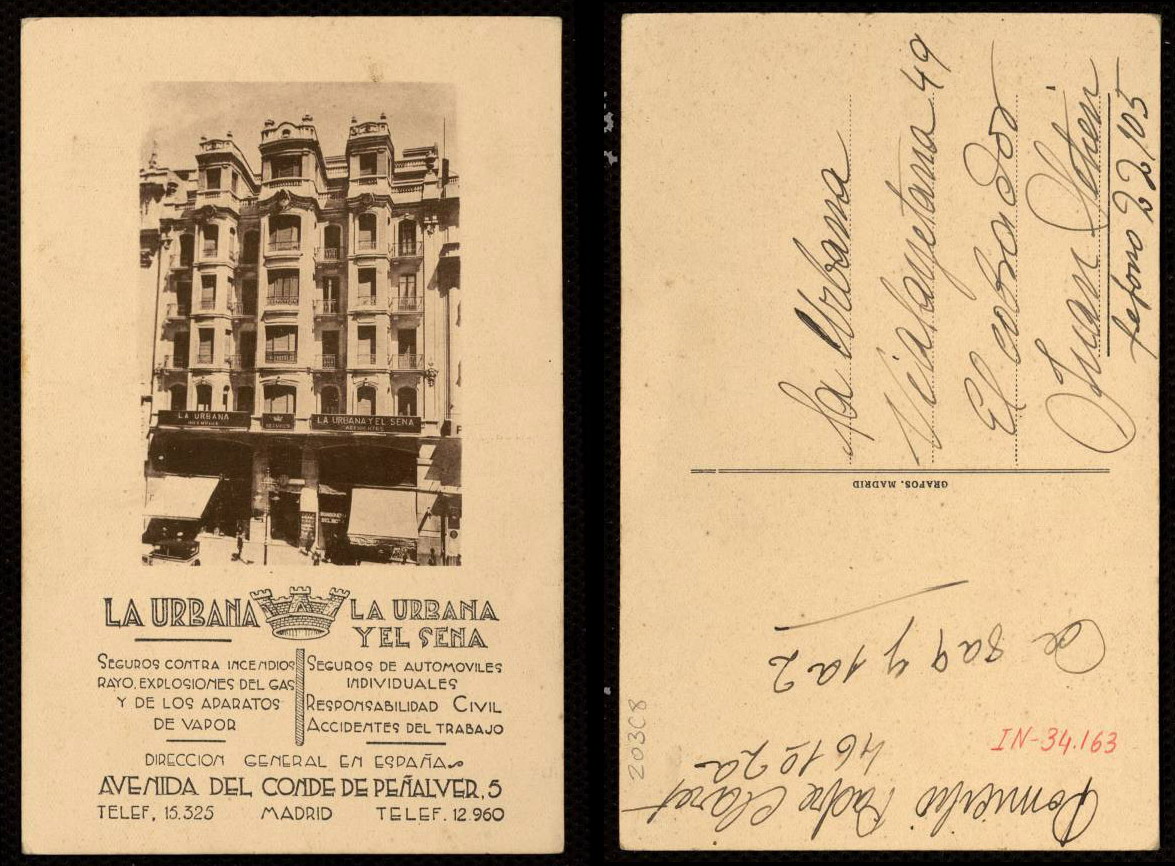 LA URBANA
LA URBANA Y EL SENA
ACCIDENTES
LA URBANA
LA URBANA
Y EL SENA
SEGUROS CONTRA INCENDIOS
RAYO, EXPLOSIONES DEL GAS
Y DE LOS APARATOS
DE VAPOR
SEGUROS DE AUTOMOVILES
INDIVIDUALES
RESPONSABILIDAD CIVIL
ACCIDENTES DEL TRABAJO
DIRECCION GENERAL EN ESPAÑA
AVENIDA DEL CONDE DE PEÑALVER, 5
TELEF. 15.325 MADRID TELEF. 12.960
La Urbana
Vialayetana 49
El cobrador
Juan
tefono 22105
GRAFOS. MADRID
De 8 a 9 y 1 a 2
Domicilio Padre Claret
461 2
IN-34.163
203C8